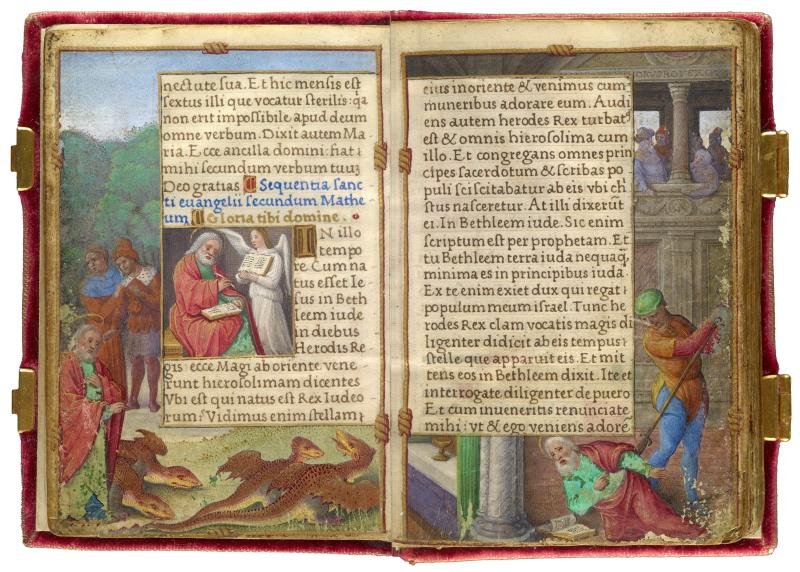 nectute sua. Et hic mensis est
sextus illi que vocatur sterilis: qa
non erit impossibile apud deum
omne verbum. Dixit autem Ma
ria. Ecce ancilla domini: fiat
mihi secundum verbum tuuʒ
Deo gratias. Sequentia sanc
ti euangelii secundum Mathe
um Gloria tibi domine.
IN illo
tempo
re. Cum na
tus esset Ie
sus in Beth
leem iude
in diebus
Herodis Re
gis: ecce Magi ab oriente vene
runt hierosolimam dicentes
Vbi est qui natus est Rex Iudeo
rum? Vidimus enim stellam
eius in oriente & venimus cum
muneribus adorare eum. Audi
ens autem herodes Rex turbat
est & omnis hierosolima cum
illo. Et congregans omnes prin
cipes sacerdotum & scribas po
puli sciscitabatur ab eis vbi ch̄
stus nasceretur. At illi dixerūt
ei. In Bethleem iude. Sic enim
scriptum est per prophetam. Et
tu Bethleem terra iuda nequaq̄
minima es in principibus iuda.
Ex te enim exiet dux qui regat
populum meum israel. Tunc he
rodes Rex clam vocatis magis di
ligenter didicit ab eis tempus
stelle que apparuit eis. Et mit
tens eos in Bethleem dixit. Ite et
interrogate diligenter de puero
Et cum inueneritis renunciate
mihi: vt & ego veniens adorē